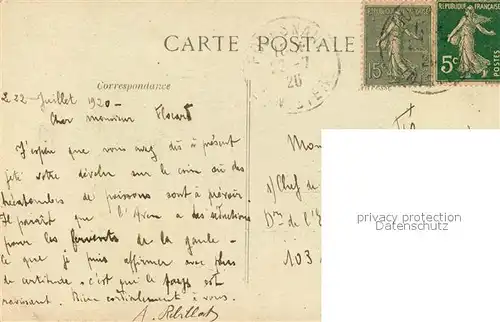 CARTE POSTALE
Correspondance
RÉPUBLIQUE FRANÇAISE
15c
5c
POSTES
Le 22 Juillet 1920 -
Cher monsieur
J'espère que vous avez dès à présent
jeté votre dévolu sur le coin où des
hécatombes de poissons sont à prévoir
Il paraît que l'Aven a des séductions
pour les fervents de la gaule -
ce que je puis affirmer avec plus
de certitude c'est que le pays est
ravissant. Bien cordialement à vous.
A. Rebillat
Mon
s/ Chef de
Don de l'E
103
privacy protection
Datenschutz